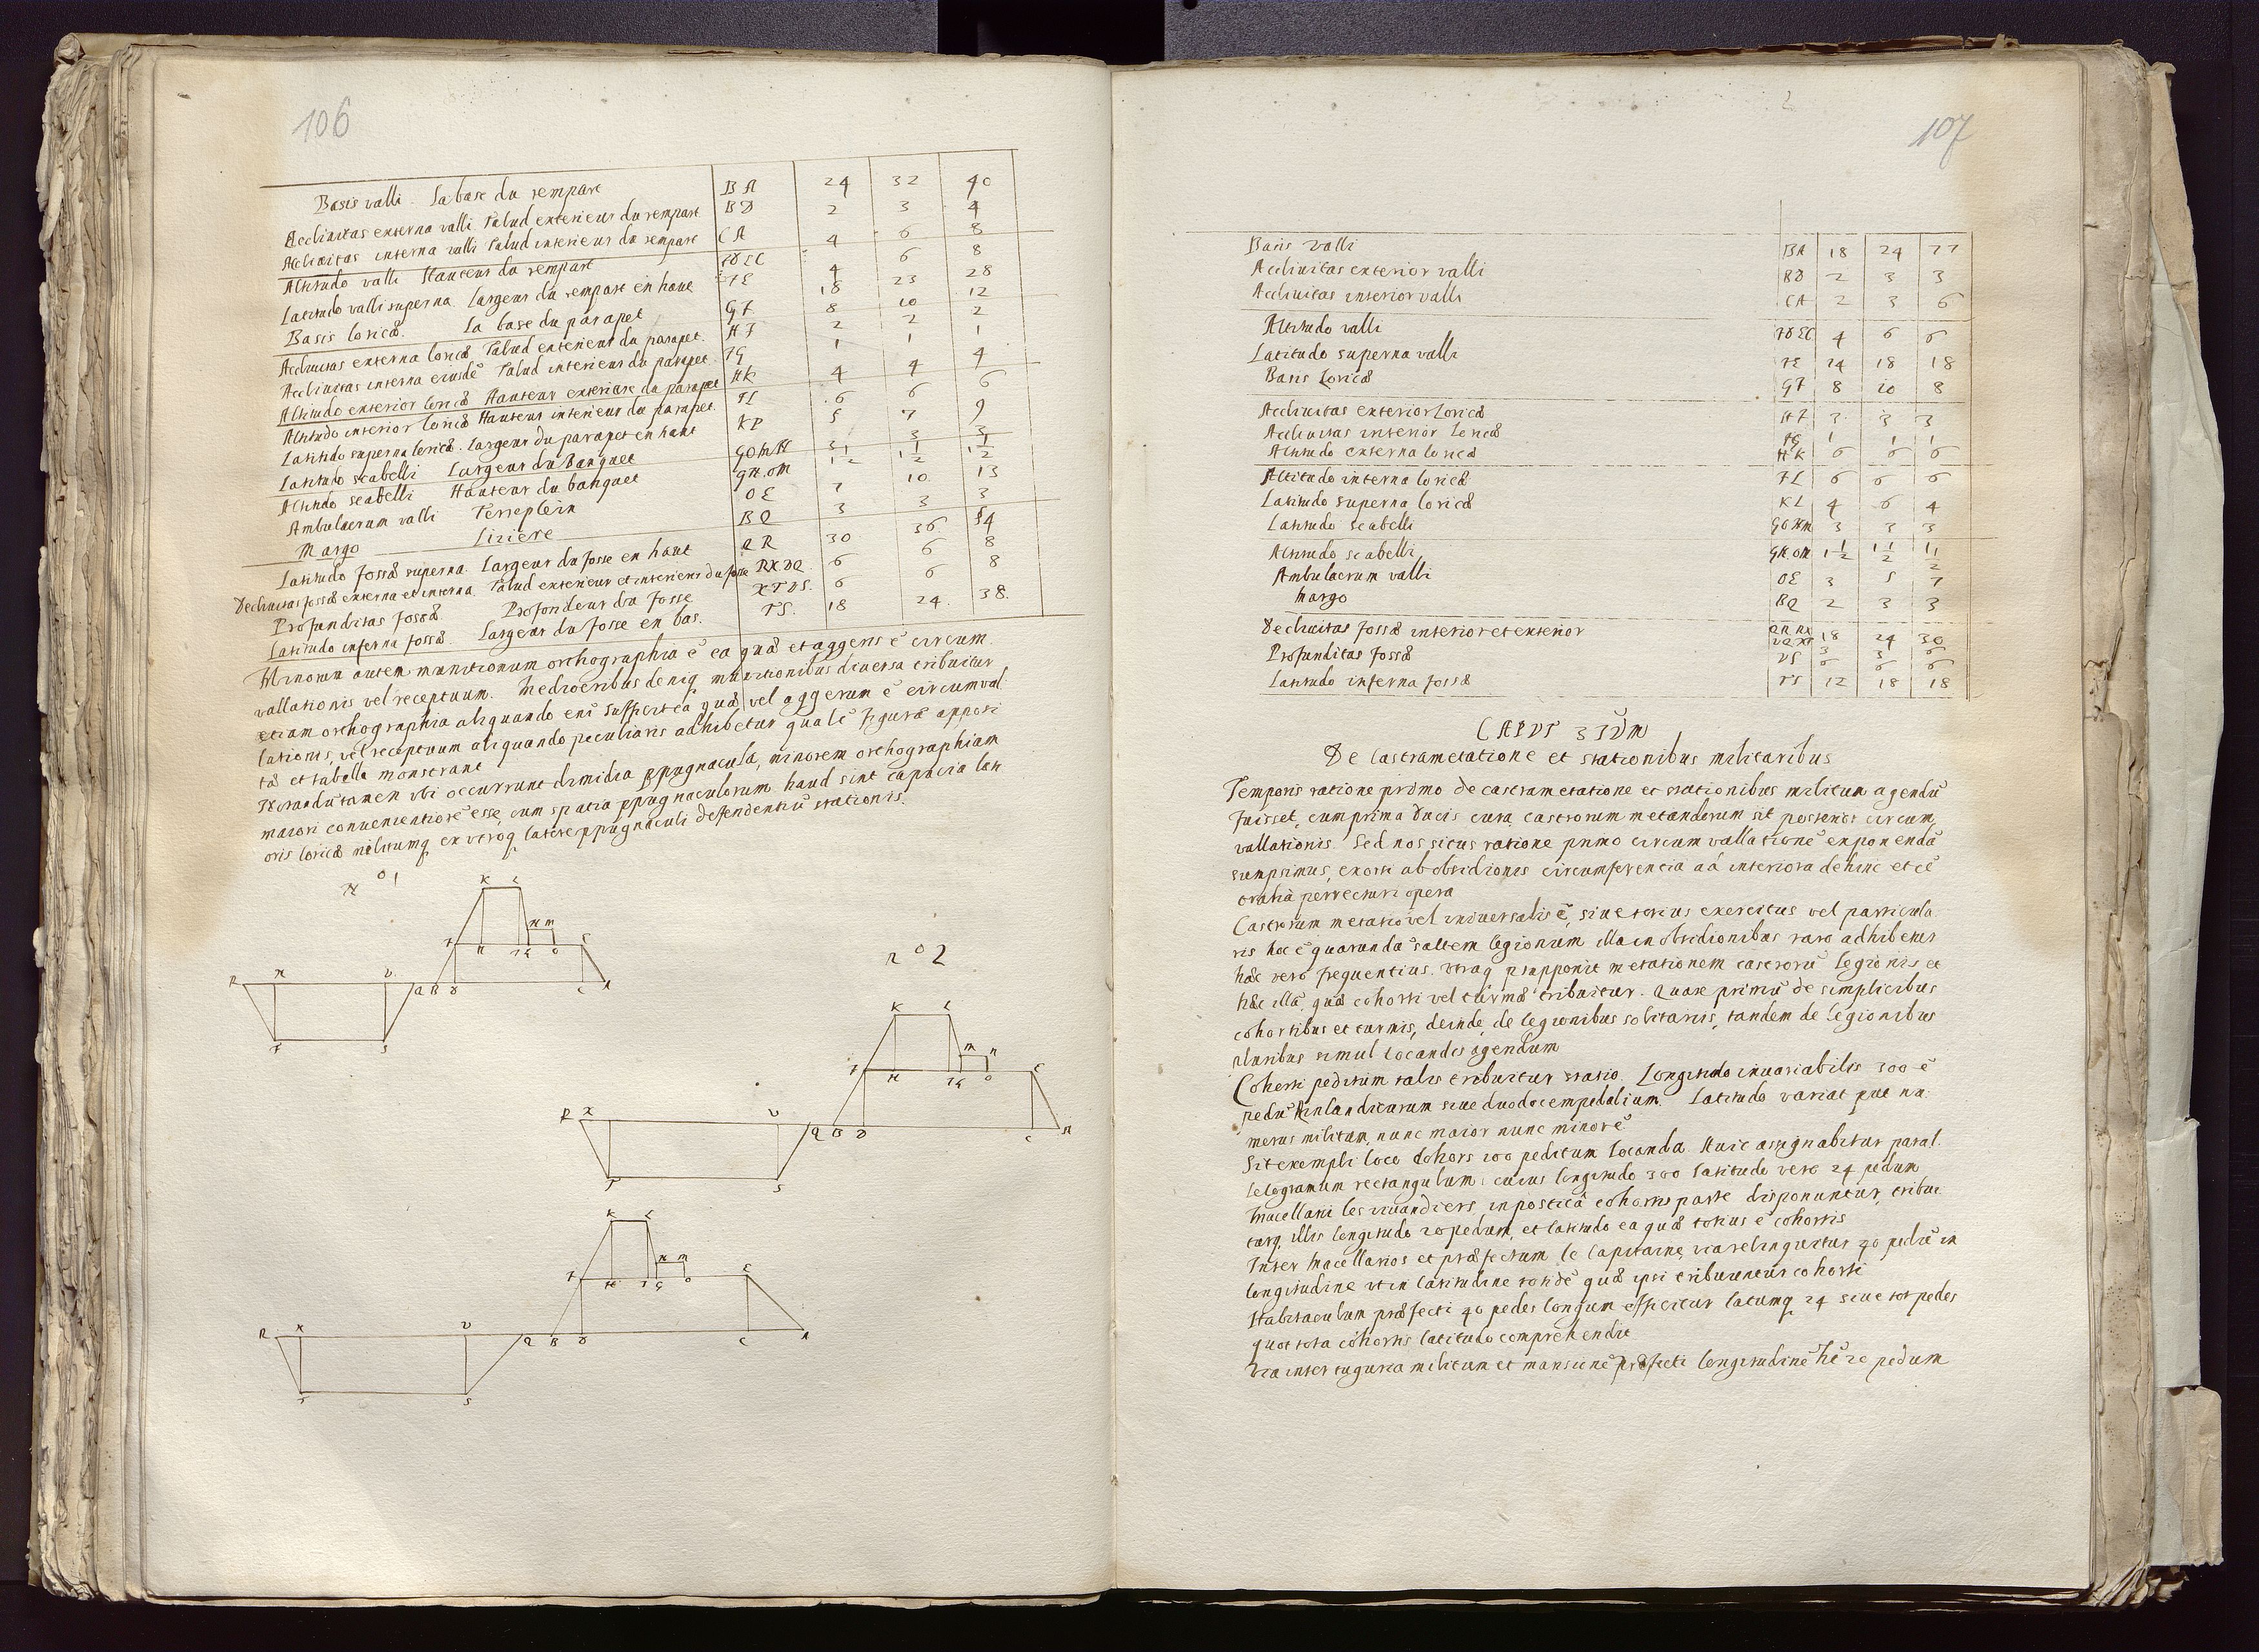 106
Basis valli. La base du rempart BA 24 32 40
Acclivitas externa valli Talud exterieur du rempart BD 2 3 4
Acclivitas interna valli Talud interieur du rempart CA 4 6 8
Altitudo valli Hauteur du rempart FDEC 4 6 8
Latitudo valli superna. Largeur du rempart en haut FE 18 23 28
Basis loricæ. La base du parapet GF 8 10 12
Acclivitas externa loricæ Talud exterieur du parapet. HF 2 2 2
Acclivitas interna eiusdē Talud interieur du parapet. IG 1 1 1
Altitudo exterior loricæ Hauteur exterieure du parapet HK 4 4 4
Altitudo interior loricæ Hauteur interieur du parapet. IL 6 6 6
Latitudo superna loricæ. Largeur du parapet en haut KL 5 7 9
Latitudo scabelli Largeur du Banquet GO 3 3 3
Altitudo scabelli Hauteur du banquet GN.OM 1½ 1½ 1½
Ambulacrum valli Terreplein OE 7 10 13
Margo Liziere BQ 3 3 3
Latitudo fossæ superna. Largeur du fosse en haut QR 30 36 54
Declivitas fossæ externa et interna. Talud exterieur et interieur du fosse RXVQ 6 6 8
Profunditas fossæ Profondeur du fosse XTVS. 6 6 8
Latitudo inferna fossæ. Largeur du fosse en bas. TS. 18 24. 38.
Minorum autem munitionum orthographia ē ea quæ et aggeris ē circum
vallationis vel receptuum. Mediocribus deniq munitionibus diversa tribuitur
etiam orthographia aliquando eni sufficit ea quæ vel aggerum ē circumval
lationis, vel receptuum aliquando peculiaris adhibetur qualē figuræ apposi
tæ et tabella monstrant
Notandū tamen ubi occurrunt dimidia ppugnacula, minorem orthographiam
maiori convenientiorē esse, cum spatia ppugnaculorum haud sint capacia lati
oris loricæ militumq ex utroq latere ppugnaculi defendentiū stationis.
N° 1
K L
N M
F H I G O E
R X V Q B D C A
T S
n° 2
K L
m n
F H I G O E
R X V Q B D C A
T S
K L
N M
F H I G O E
R X V Q B D C A
T S
107
Basis valli BA 18 24 27
Acclivitas exterior valli BD 2 3 3
Acclivitas interior valli CA 2 3 6
Altitudo valli FDEC 4 6 6
Latitudo superna valli FE 14 18 18
Basis Loricæ GF 8 10 8
Acclivitas exterior Loricæ HF 3 3 3
Acclivitas interior Loricæ IG 1 1 1
Altitudo externa loricæ HK 6 6 6
Altitudo interna loricæ IL 6 6 6
Latitudo superna loricæ KL 4 6 4
Latitudo scabelli GO NM 3 3 3
Altitudo scabelli GN.OM 1½ 1½ 1½
Ambulacrum valli OE 3 5 7
Margo BQ 2 3 3
Declivitas fossæ interior et exterior QR RX VQ XT 18 24 30
Profunditas fossæ VS 6 6 6
Latitudo inferna fossæ TS 12 18 18
CAPUT 3TIUM
De Castrametatione et stationibus militaribus
Temporis ratione primo de castrametatione et stationibus militum agendū
fuisset, cum prima Ducis cura castrorum metandorum sit posterior circum
vallationis. Sed nos situs ratione primo circumvallationē exponendā
sumpsimus, exorsi ab obsidionis circumferentia ad interiora dehinc et cē
perrecturi opera
Castrorum metatio vel universalis ē, sive totius exercitus vel particula
ris hoc ē quarundā saltem legionum illa in obsidionibus raro adhibetur
hæc vero frequentius. Utraq psupponit metationem castrorū legionis et
hæc illā, quæ cohorti vel turmæ tribuitur. Quare primū de simplicibus
cohortibus et turmis, deinde de legionibus solitariis, tandem de legionibus
pluribus simul locandis agendum
Cohorti peditum talis tribuitur statio. Longitudo invariabilis 300 ē
pedū Rinlandicurum sive duodecempedalium. Latitudo variat put nu
merus militum, nunc maior nunc minor ē
Sit exempli loco Cohors 100 peditum locanda. Huic assignabitur paral
lelogramum rectangulum: cuius longitudo 300 latitudo vero 24 pedum
Macellarii les vivandiers in posticâ cohortis parte disponuntur, tribui
turq illis longitudo 20 pedum, et latitudo ea quæ totius ē cohortis
Inter Macellarios et præfectum le Capitaine via relinquitur 20 pedū in
longitudine ut in latitudine totidē quæ ipsi tribuuntur cohorti
Habitaculum præfecti 40 pedes longum efficitur latumq 24 sive tot pedes
quot tota cohortis latitudo comprehendit
Via inter tuguria militum et mansionē præfecti longitudinē hēt 20 pedum